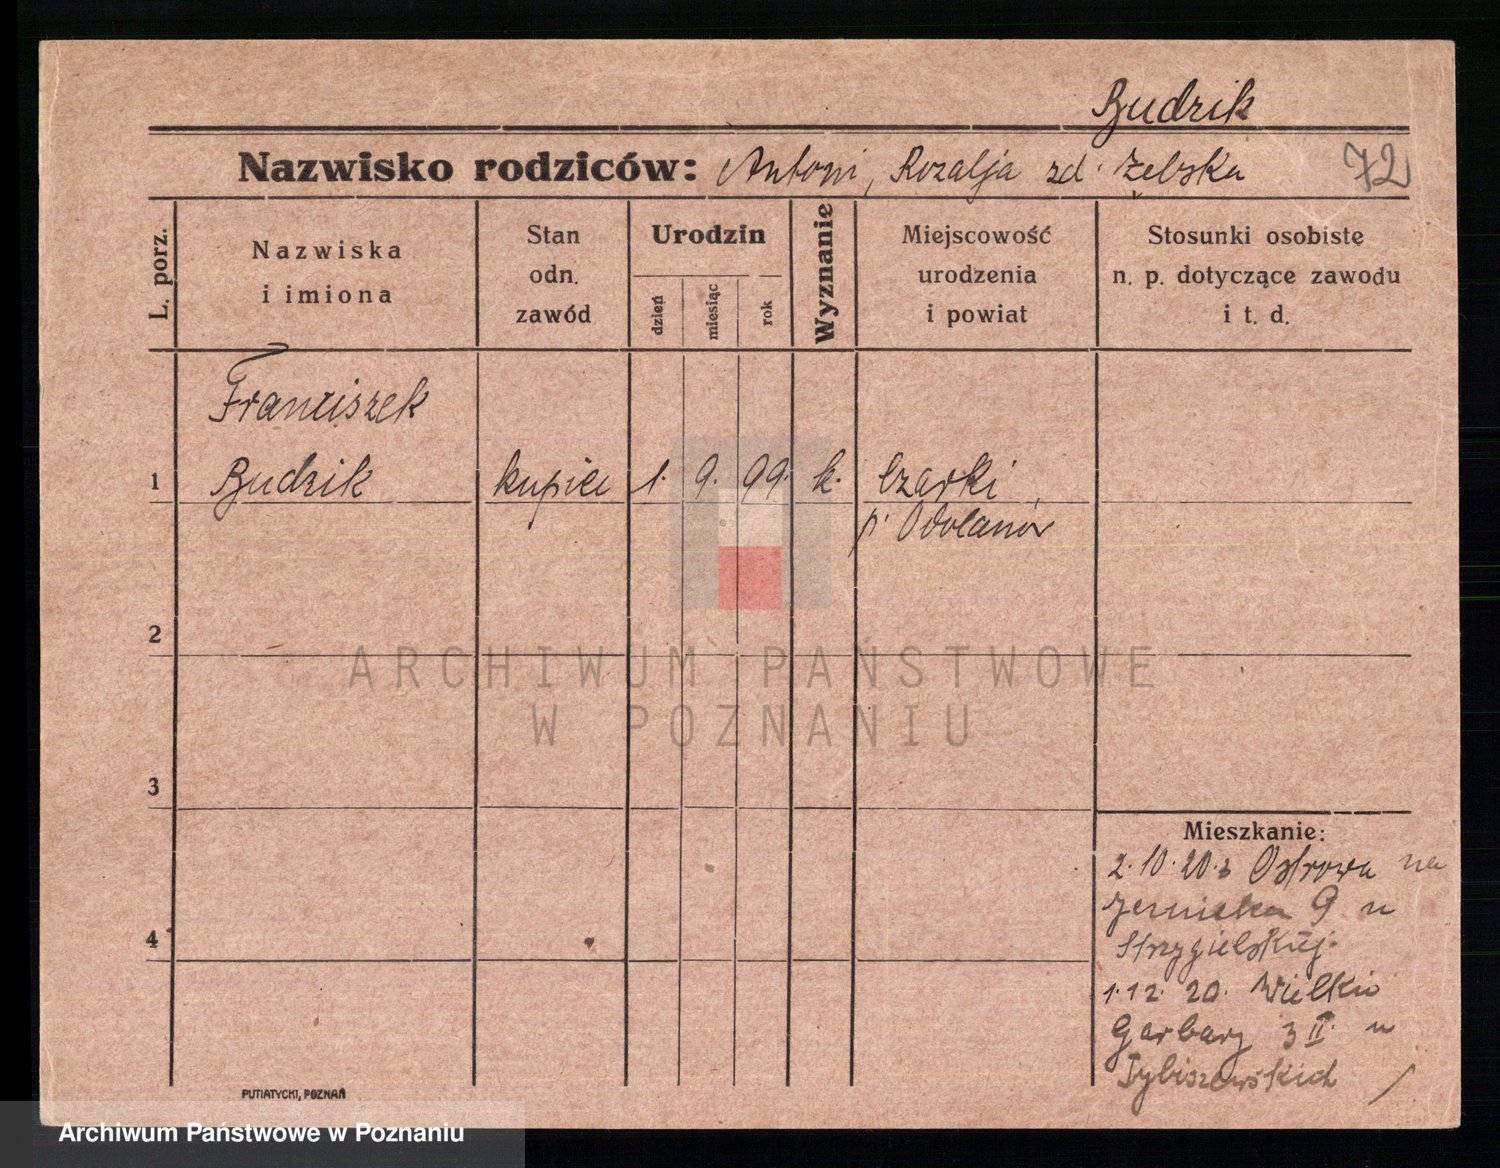 Budzik
Nazwisko rodziców: Antoni, Rozalja zd. Żelska
72
L. porz.
Nazwiska
i imiona
Stan
odn.
zawód
Urodzin
dzień
miesiąc
rok
Wyznanie
Miejscowość
urodzenia
i powiat
Stosunki osobiste
n. p. dotyczące zawodu
i t. d.
Franciszek
1 Budzik kupiec 1. 9. 99. k. Czarki,
p. Odolanów
2
3
4
Mieszkanie:
2.10.20. z Ostrowa na
9 u
Strzygielskiej.
1.12. 20. Wielkie
Garbary 3 II. u
Tybiszewskich
PUTIATYCKI, POZNAŃ
ARCHIWUM PAŃSTWOWE
W POZNANIU
Archiwum Państwowe w Poznaniu